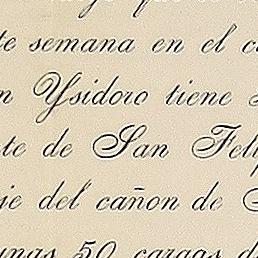 te semana en el c
n Ysidoro tiene
te de San Feli
je del cañon de
unas 50 cargas d